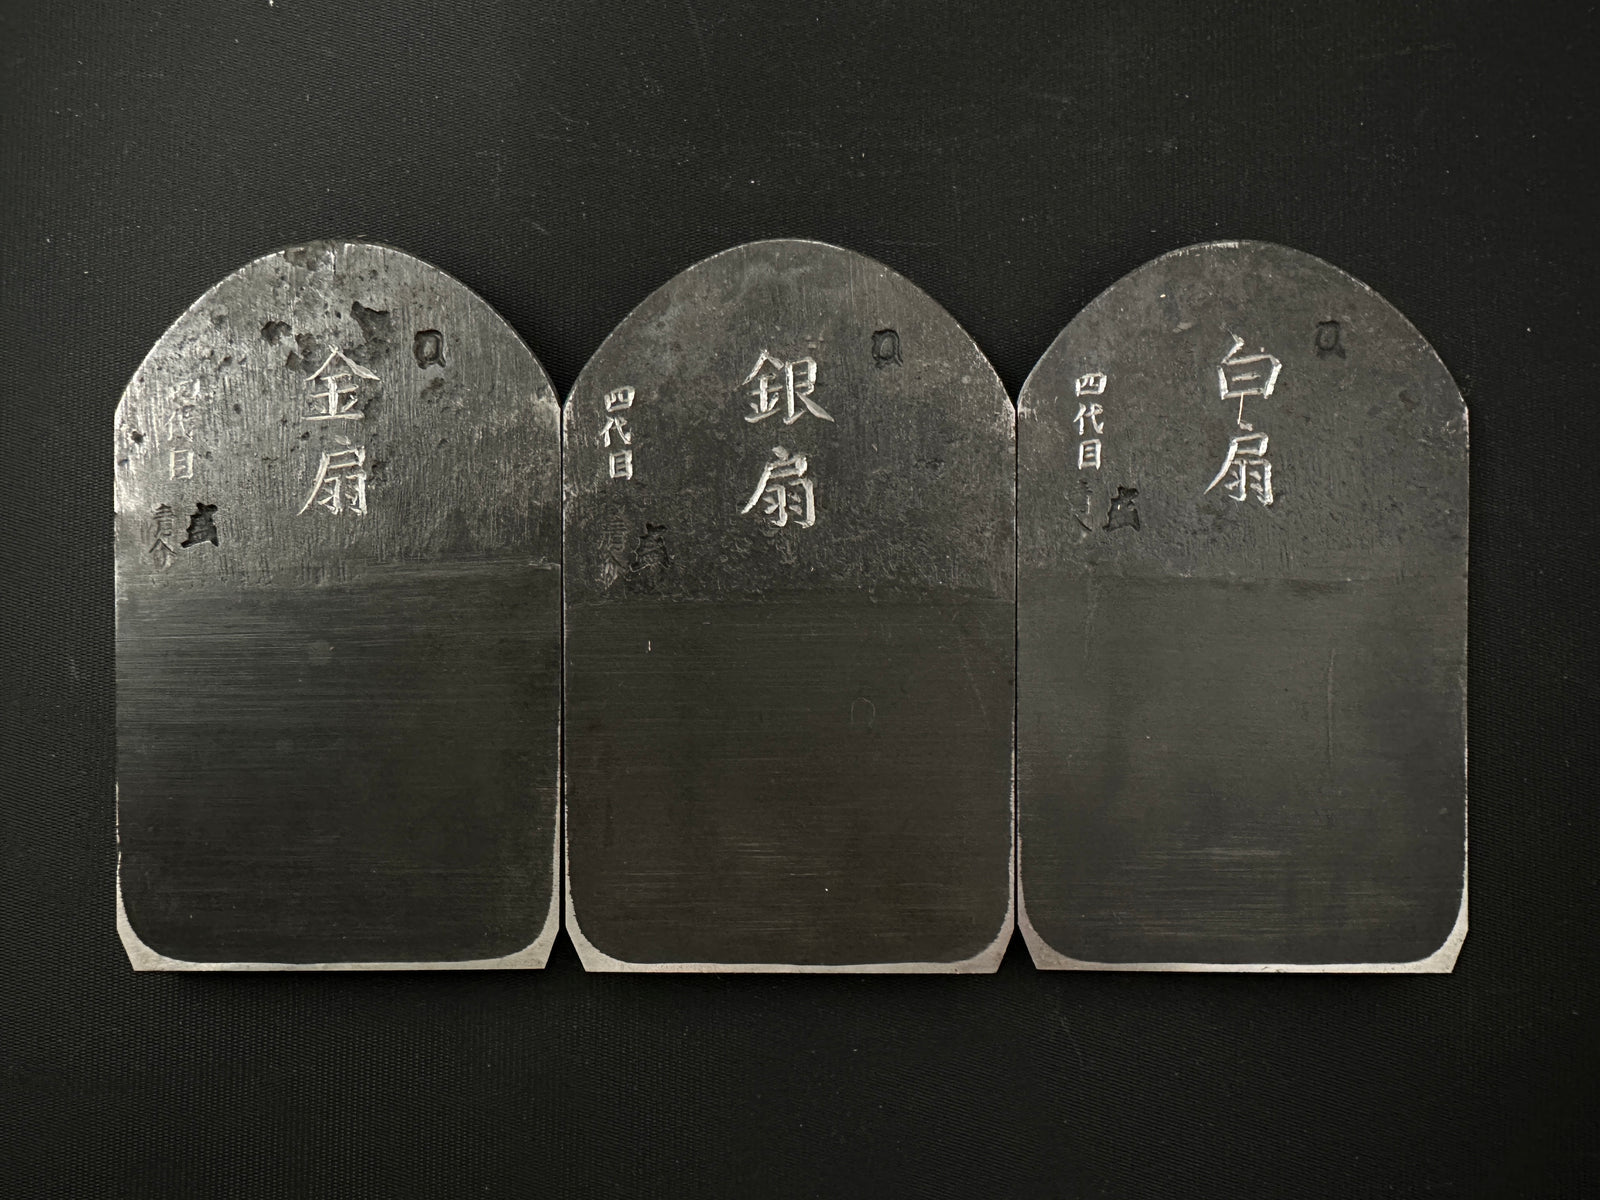 金扇
四代目
銀扇
四代目
白扇
四代目